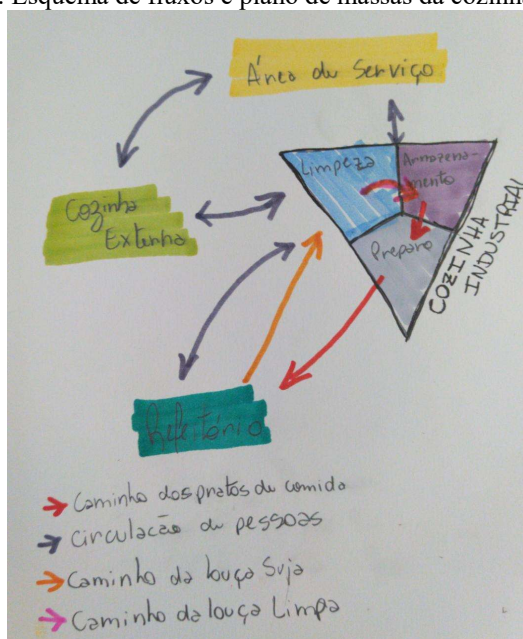 Esquema de fluxos e plano de massas da cozinha
Área de Serviço
Limpeza
Armazena-
mento
Cozinha
Externa
Preparo
COZINHA
INDUSTRIAL
Refeitório
Caminho dos pratos de comida
Circulação de pessoas
Caminho da louça Suja
Caminho da louça Limpa